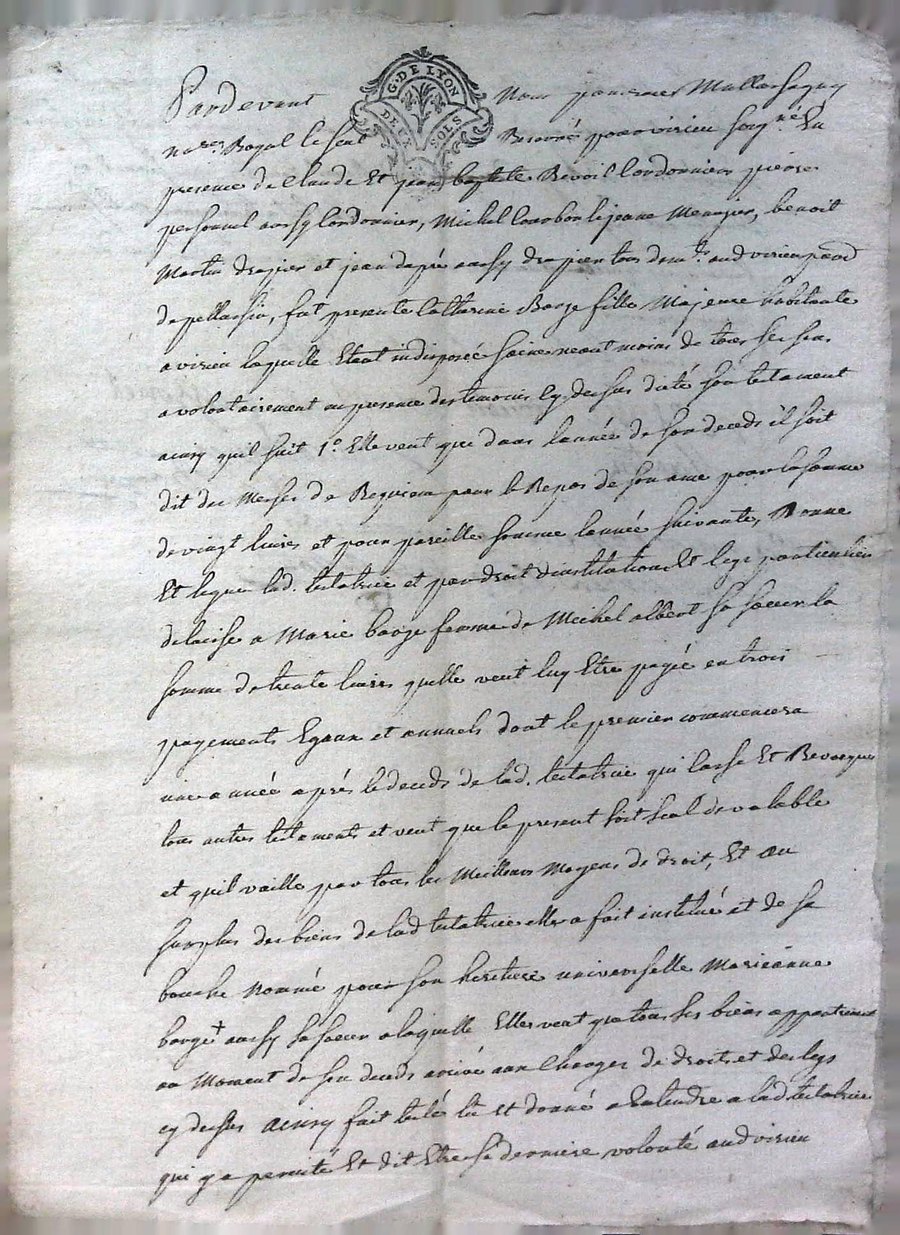 G. DE LYON
DEUX SOLS
Pardevant Nous
nore Royal le sent Reservé pour virieu soigné En
presence de Claude Et jean baptiste Revoil Cordonniers pierre
personnel aussy Cordonnier, Michel Courbon le jeune Menusier, benoit
Martin drapier et jean dapré aussy drapier tous demts. aud virieu parr
de pellassin, fut presente Catherine Barge fille Majeure habitante
a virieu laquelle Etant indisposée saine neant moins de tous ses sens
a volontairement en presence des temoins Cy dessus dicté son testament
ainsy quil suit 1o. Elle veut que dans lannée de son deceds il soit
dit des Messes de Requiem pour le Repos de son ame pour la somme
de vingt livres et pour pareille somme lannée suivante, Donne
Et legue lad. testatrice et par droit dinstitution Et legs particulier
delaisse a Marie barge femme de Michel albert sa soeur la
somme de trente livres quelle veut luy Etre payée en trois
payements Egaux et annuels dont le premier commencera
une année aprés le deceds de lad. testatrice qui Casse Et Revoque
tous autres testaments et veut que le present soit seul de valable
et quil vaille par tous les Meilleurs Moyens de droit, Et au
surplus des biens de lad testatrice elle a fait institué et de sa
bouche Nommé pour son heritiere universelle Marieanne
barge aussy sa soeur a laquelle Elle veut que tous ses biens appartiennent
au Moment de son deceds arrivé aux Charges de droits et des legs
cy dessus ainsy fait testé lu et donné a Entendre a lad testatrice
qui y a persisté Et dit Etre sa derniere volonté aud virieu